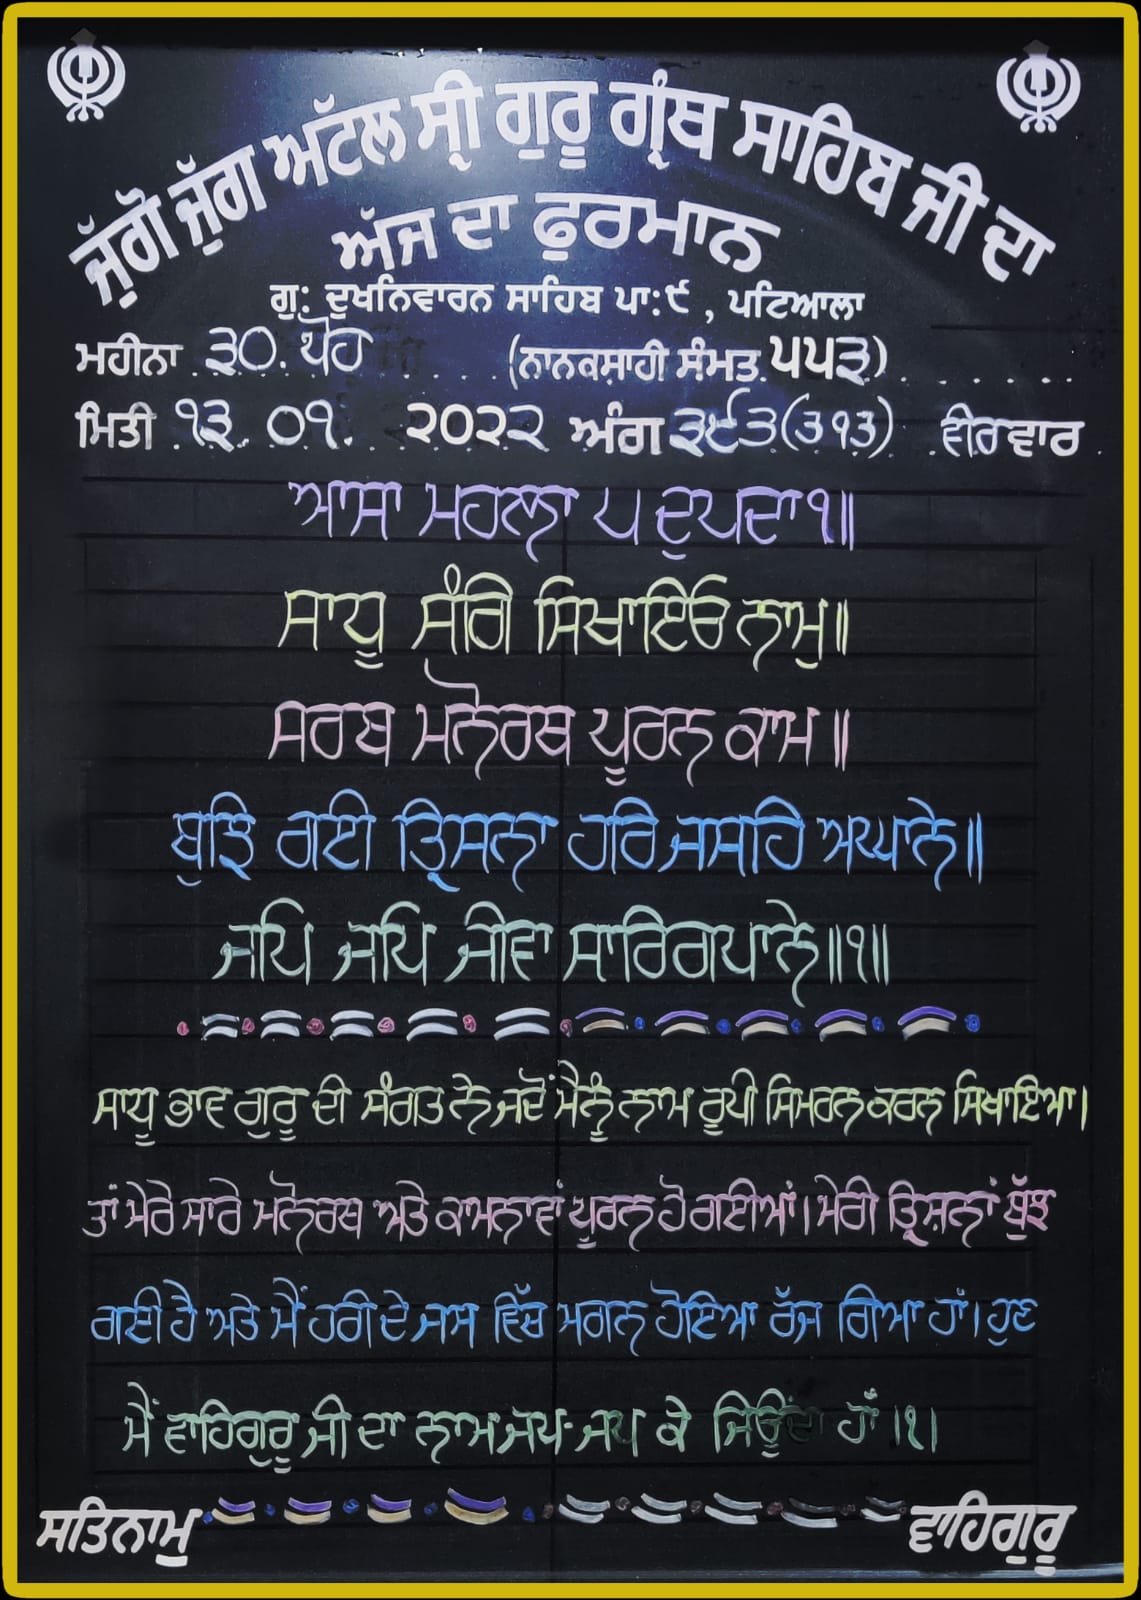 ਜੁੱਗੋ ਜੁੱਗ ਅਟੱਲ ਸ੍ਰੀ ਗੁਰੂ ਗ੍ਰੰਥ ਸਾਹਿਬ ਜੀ ਦਾ
ਅੱਜ ਦਾ ਫੁਰਮਾਨ
ਗੁ: ਦੂਖਨਿਵਾਰਨ ਸਾਹਿਬ ਪਾ:੯, ਪਟਿਆਲਾ
ਮਹੀਨਾ ੩੦. ਪੋਹ (ਨਾਨਕਸ਼ਾਹੀ ਸੰਮਤ ੫੫੩)
ਮਿਤੀ ੧੩. ੦੧. ੨੦੨੨ ਅੰਗ ੩੯੩(੩੧੩) ਵੀਰਵਾਰ
ਆਸਾ ਮਹਲਾ ੫ ਦੁਪਦਾ੧॥
ਸਾਧੂ ਸੰਗਿ ਸਿਖਾਇਓ ਨਾਮੁ॥
ਸਰਬ ਮਨੋਰਥ ਪੂਰਨ ਕਾਮ॥
ਬੁਝਿ ਗਈ ਤ੍ਰਿਸਨਾ ਹਰਿ ਜਸਹਿ ਅਘਾਨੇ॥
ਜਪਿ ਜਪਿ ਜੀਵਾ ਸਾਰਿਗਪਾਨੇ॥੧॥
ਸਾਧੂ ਭਾਵ ਗੁਰੂ ਦੀ ਸੰਗਤ ਨੇ ਜਦੋਂ ਮੈਨੂੰ ਨਾਮ ਰੂਪੀ ਸਿਮਰਨ ਕਰਨ ਸਿਖਾਇਆ।
ਤਾਂ ਮੇਰੇ ਸਾਰੇ ਮਨੋਰਥ ਅਤੇ ਕਾਮਨਾਵਾਂ ਪੂਰਨ ਹੋ ਗਈਆਂ। ਮੇਰੀ ਤ੍ਰਿਸ਼ਨਾਂ ਬੁੱਝ
ਗਈ ਹੈ ਅਤੇ ਮੈਂ ਹਰੀ ਦੇ ਜਸ ਵਿੱਚ ਮਗਨ ਹੋਇਆ ਰੱਜ ਗਿਆ ਹਾਂ। ਹੁਣ
ਮੈਂ ਵਾਹਿਗੁਰੂ ਜੀ ਦਾ ਨਾਮ ਜਪ-ਜਪ ਕੇ ਜਿਉਂਦਾ ਹਾਂ।੧।
ਸਤਿਨਾਮੁ ਵਾਹਿਗੁਰੂ